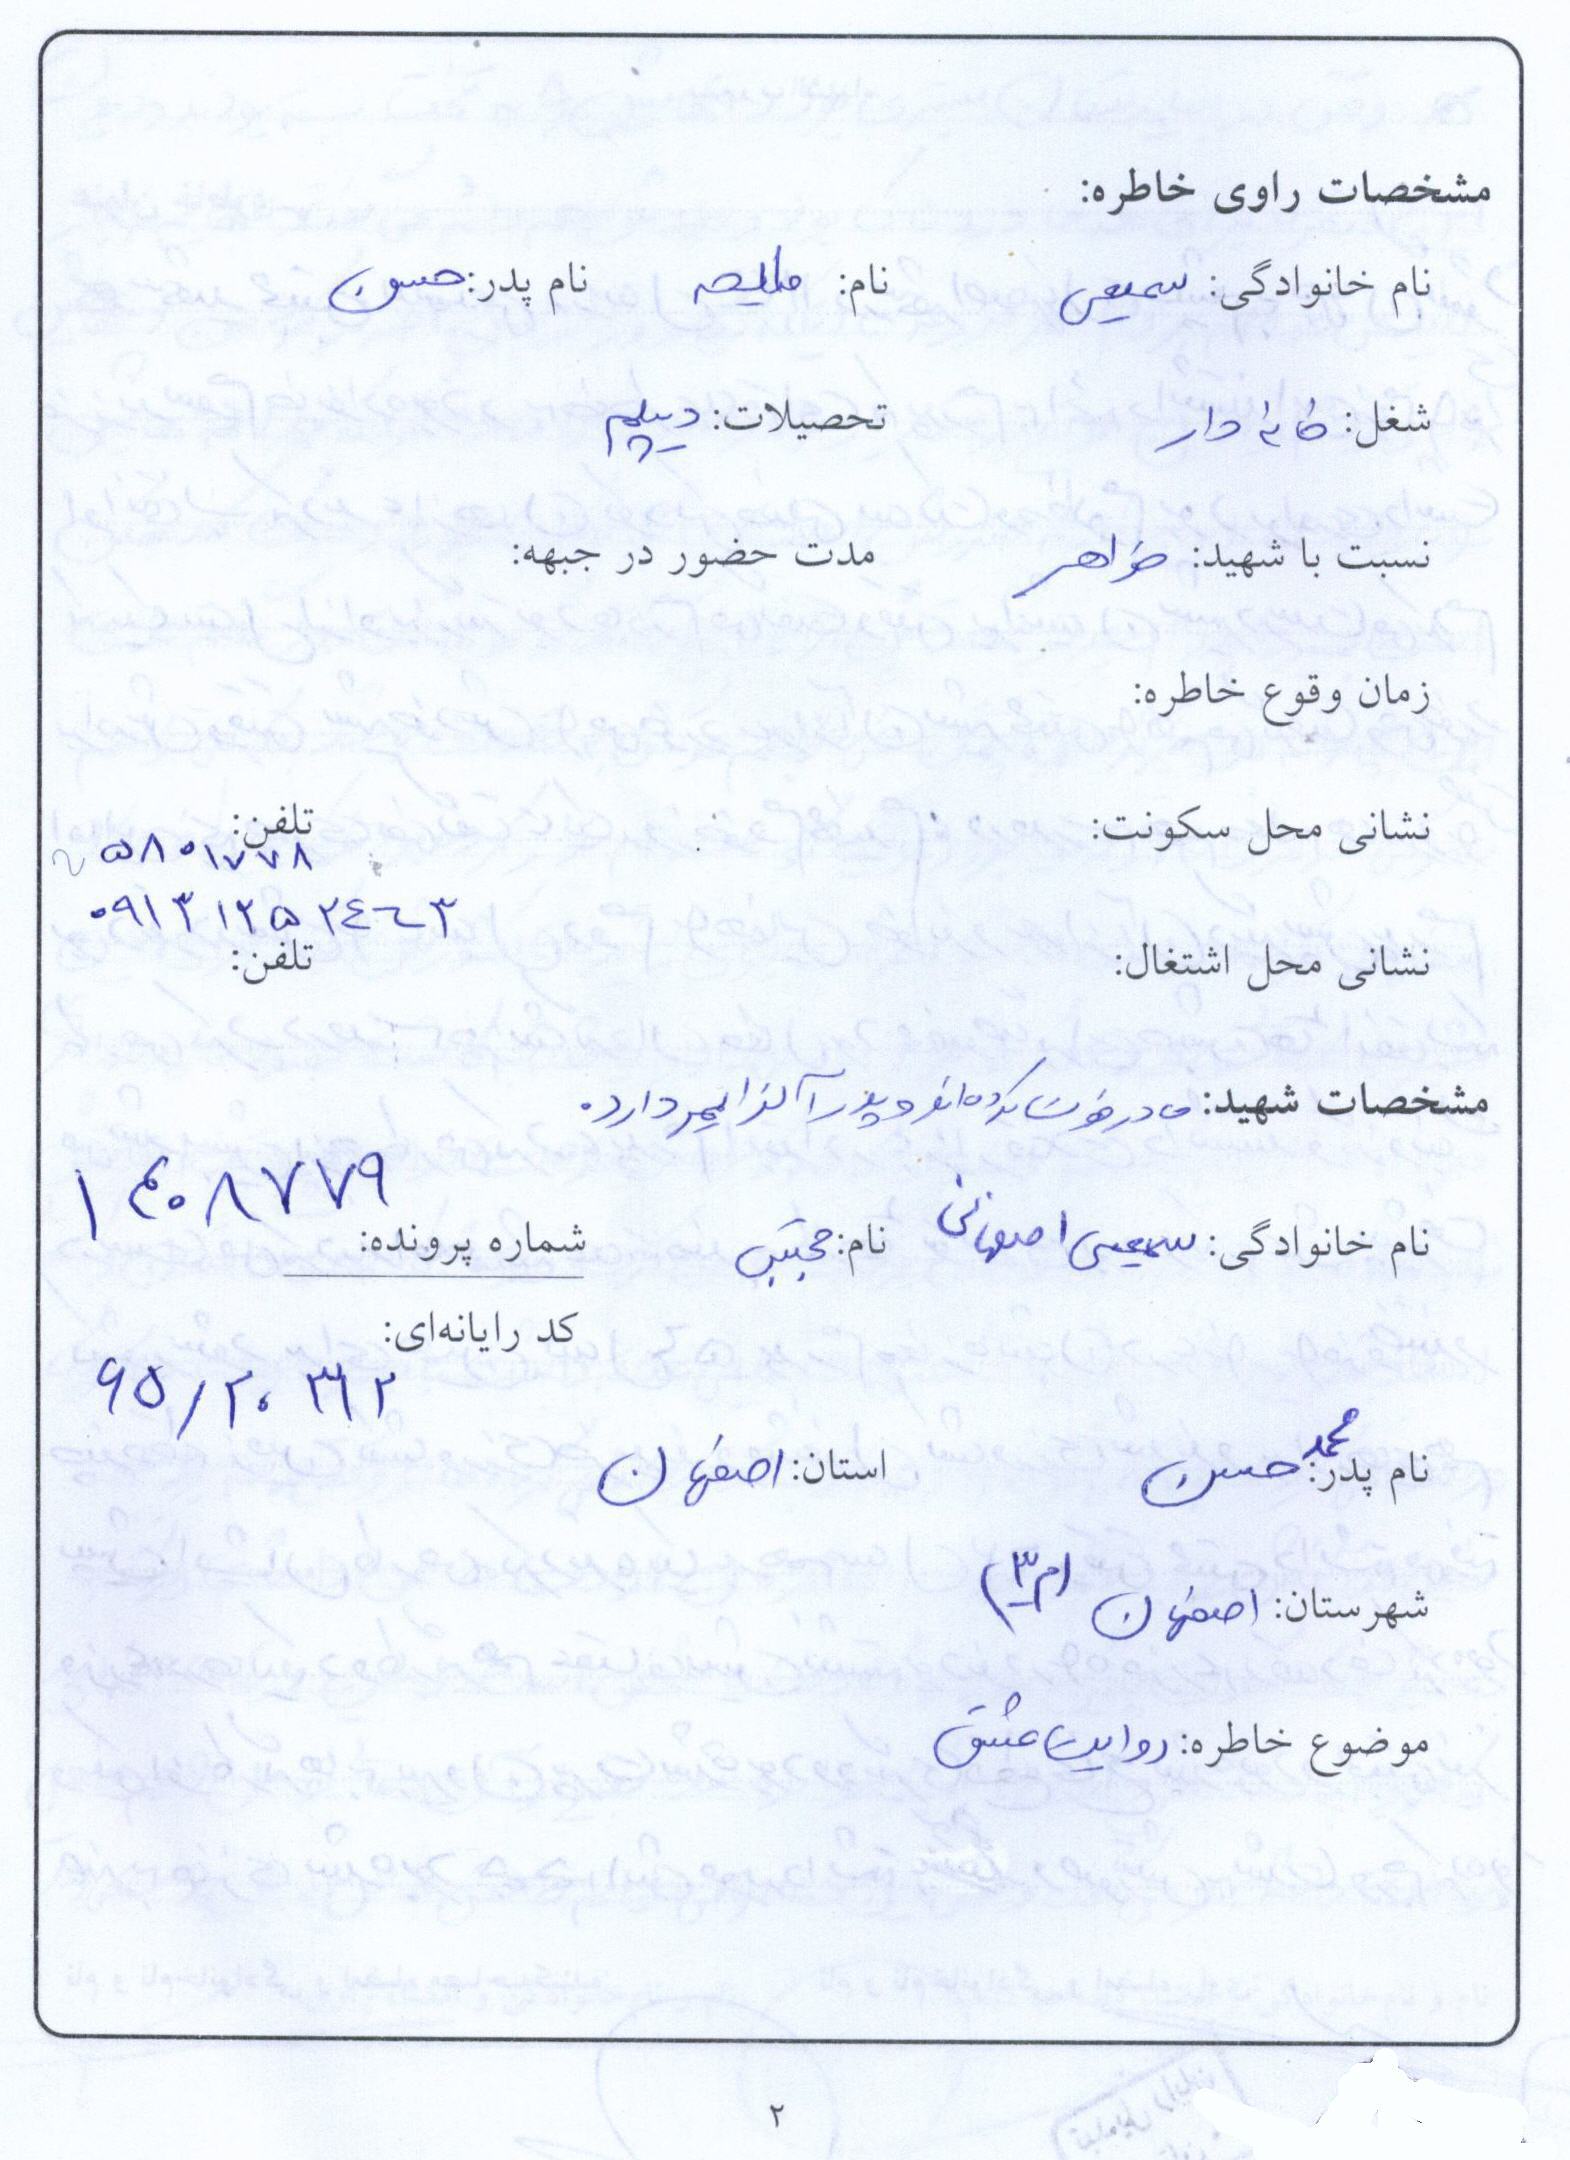 مشخصات راوی خاطره:
نام خانوادگی: سمیعی نام: ملیحه نام پدر: حسن
شغل: خانه دار تحصیلات: دیپلم
نسبت با شهید: خواهر مدت حضور در جبهه:
زمان وقوع خاطره:
نشانی محل سکونت: تلفن:
۵۸۰۱۷۷۸
نشانی محل اشتغال: تلفن:
مشخصات شهید: مادر فوت کرده‌اند و پدر آلزایمر دارد.
نام خانوادگی: سمیعی اصفهانی نام: مجتبی شماره پرونده:
کد رایانه‌ای:
نام پدر: محمد حسن استان: اصفهان
شهرستان: اصفهان
موضوع خاطره: روایت عشق
۲